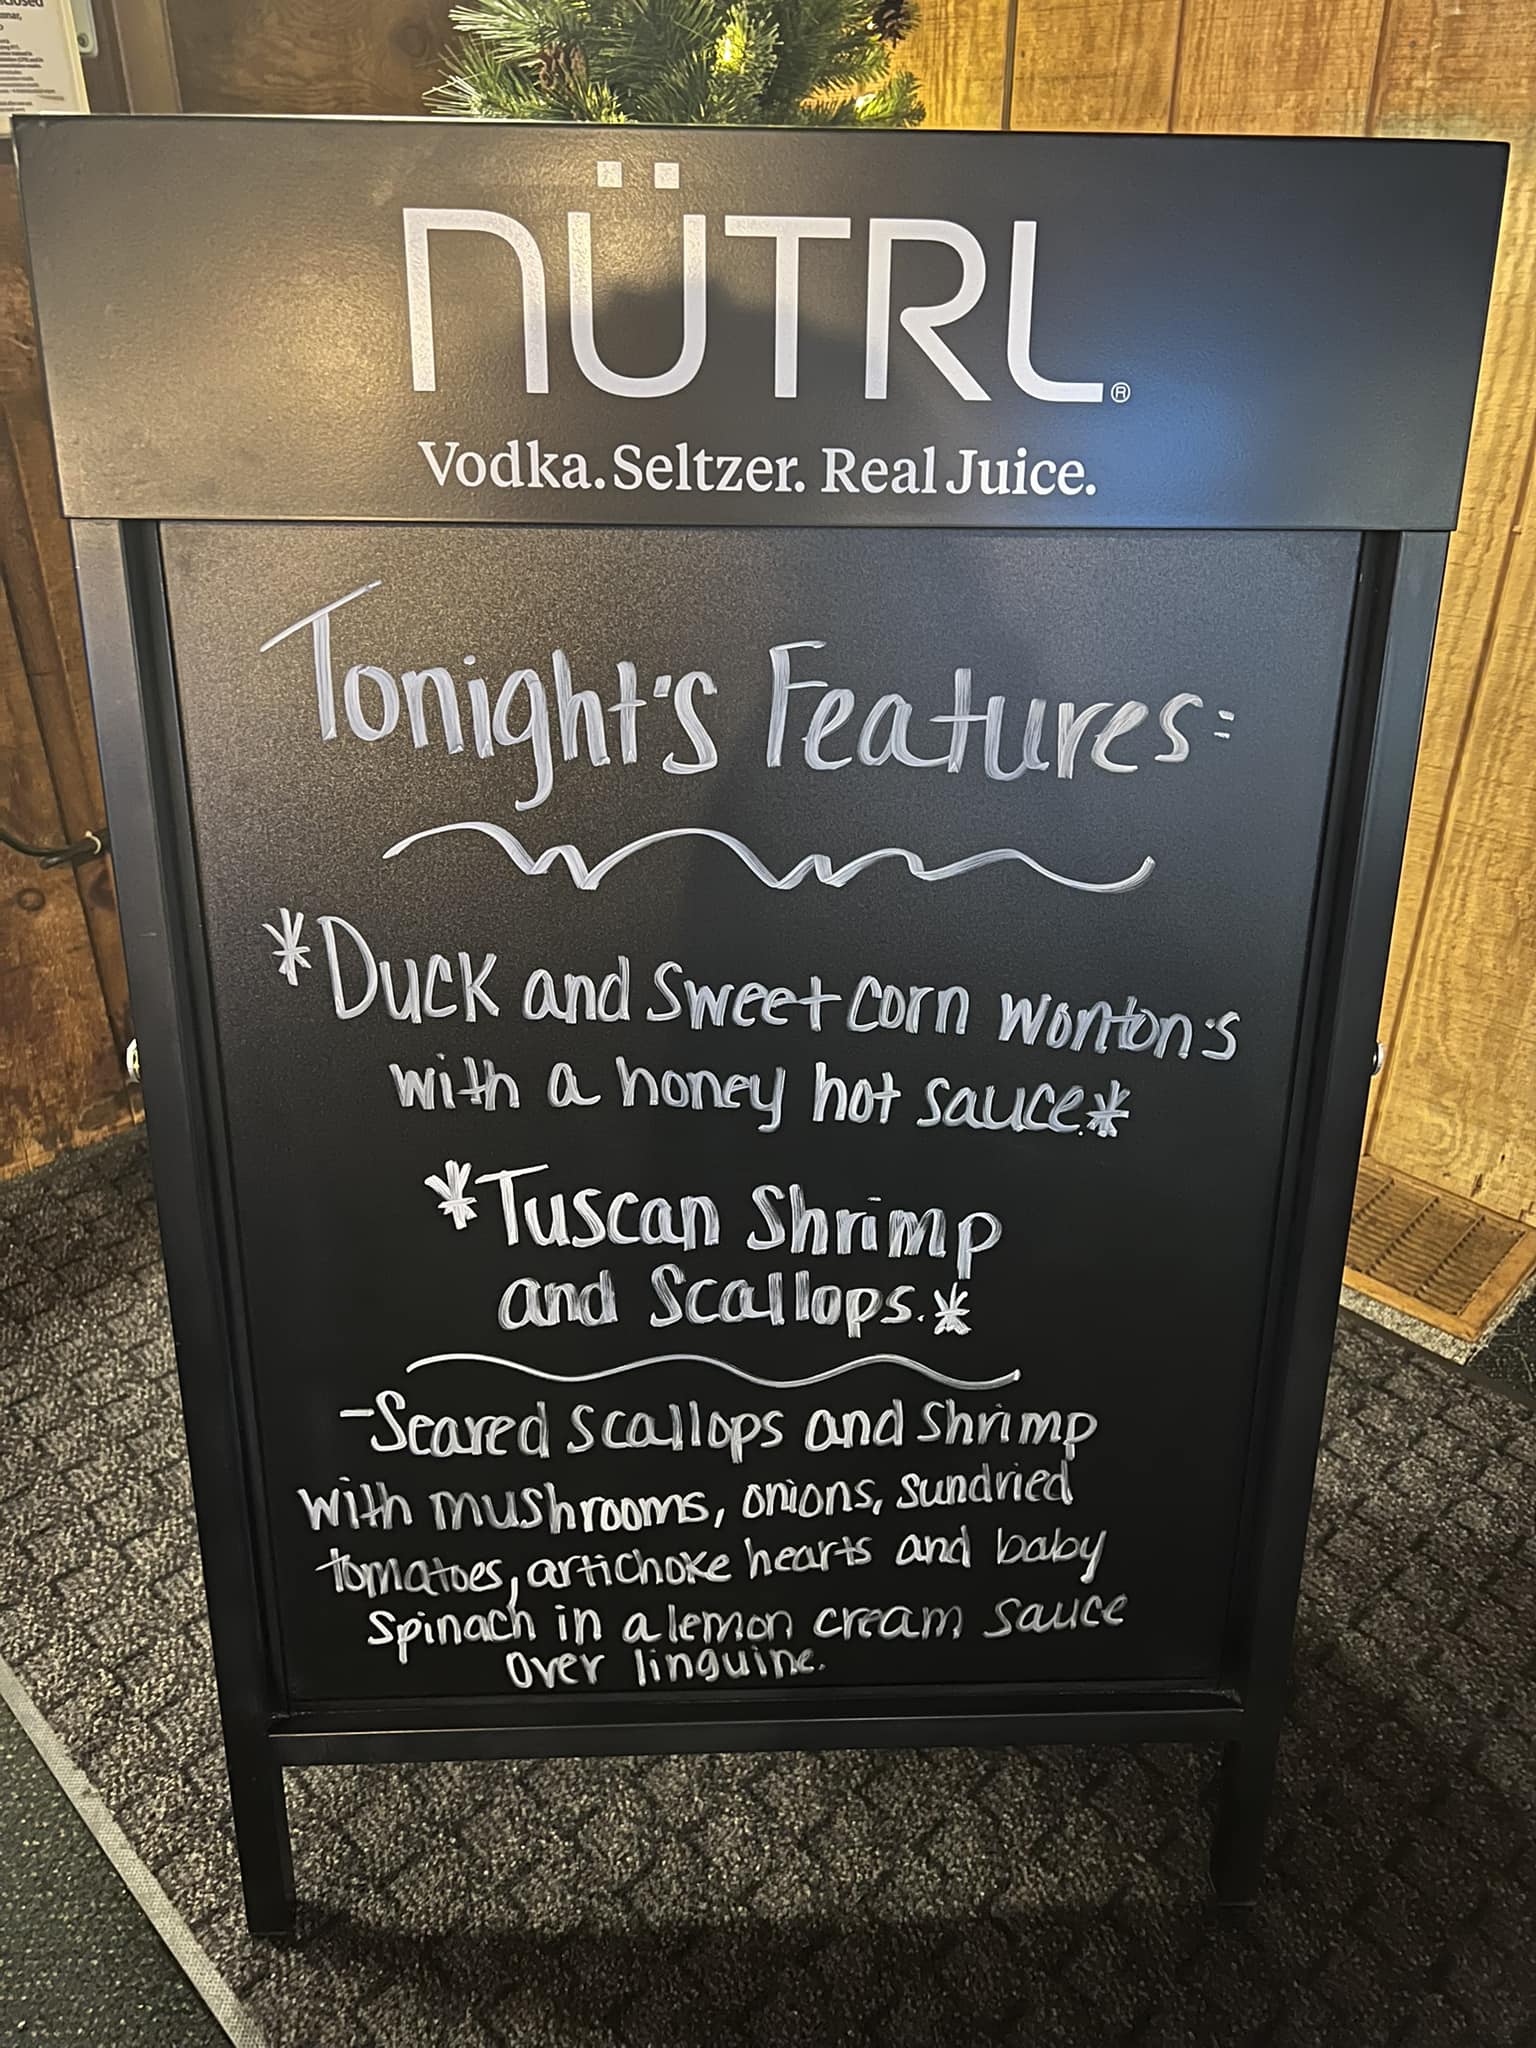 NÜTRL®
Vodka. Seltzer. Real Juice.
Tonight's Features:
*Duck and Sweet corn wonton's
with a honey hot sauce.*
*Tuscan Shrimp
and Scallops.*
-Seared scallops and shrimp
with mushrooms, onions, sundried
tomatoes, artichoke hearts and baby
spinach in a lemon cream sauce
over linguine.